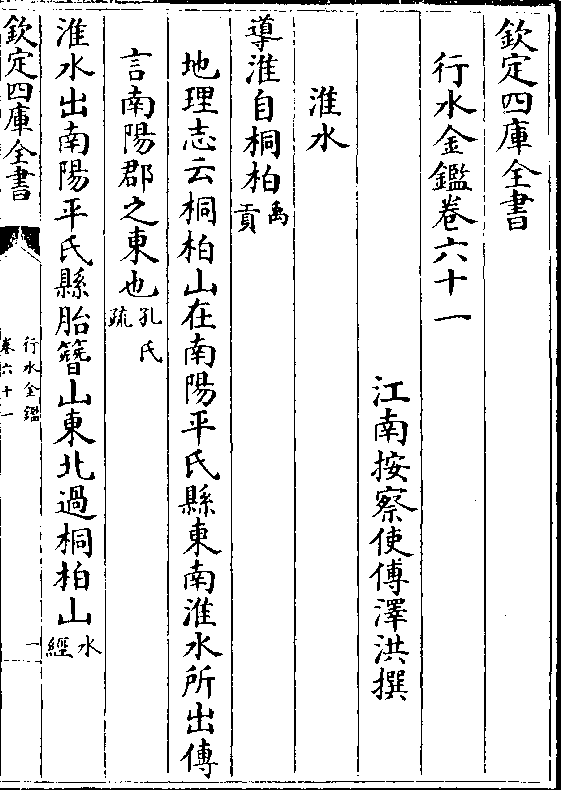 欽定四庫全書
行水金鑑卷六十一
江南按察使傅澤洪撰
淮水
導淮自桐柏禹貢
地理志云桐柏山在南陽平氏縣東南淮水所出傳
言南陽郡之東也孔氏疏
淮水出南陽平氏縣胎簪山東北過桐柏山水經
欽定四庫全書
行水金鑑
卷六十一
一